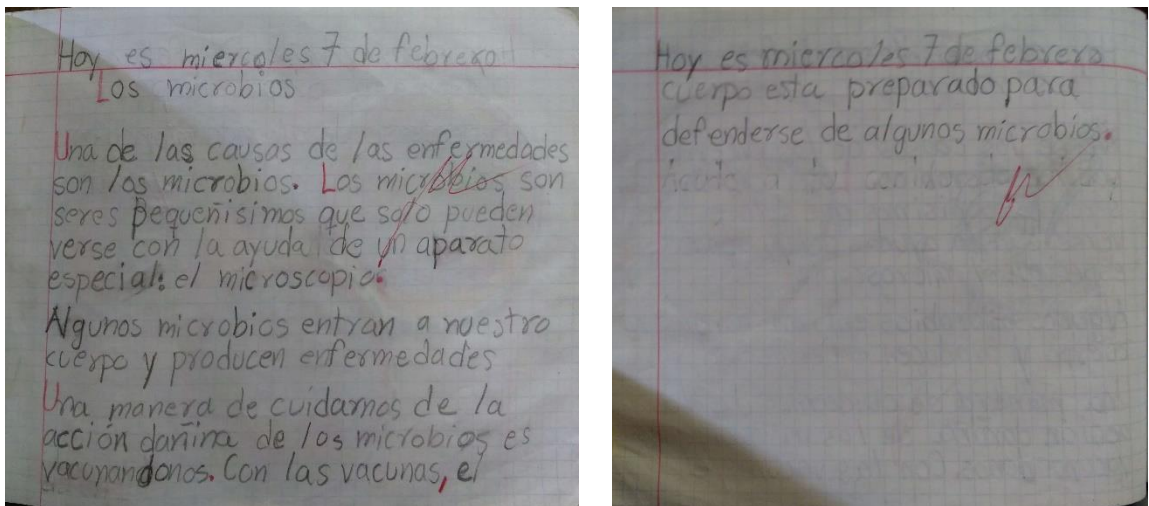 Hoy es miercoles 7 de febrero
Los microbios
Una de las causas de las enfermedades
son los microbios. Los micróbios son
seres pequeñisimos que solo pueden
verse con la ayuda de un aparato
especial: el microscopio.
Algunos microbios entran a nuestro
cuerpo y producen enfermedades
Una manera de cuidarnos de la
acción dañina de los microbios es
vacunandonos. Con las vacunas, el
Hoy es miercoles 7 de febrero
cuerpo esta preparado para
defenderse de algunos microbios.